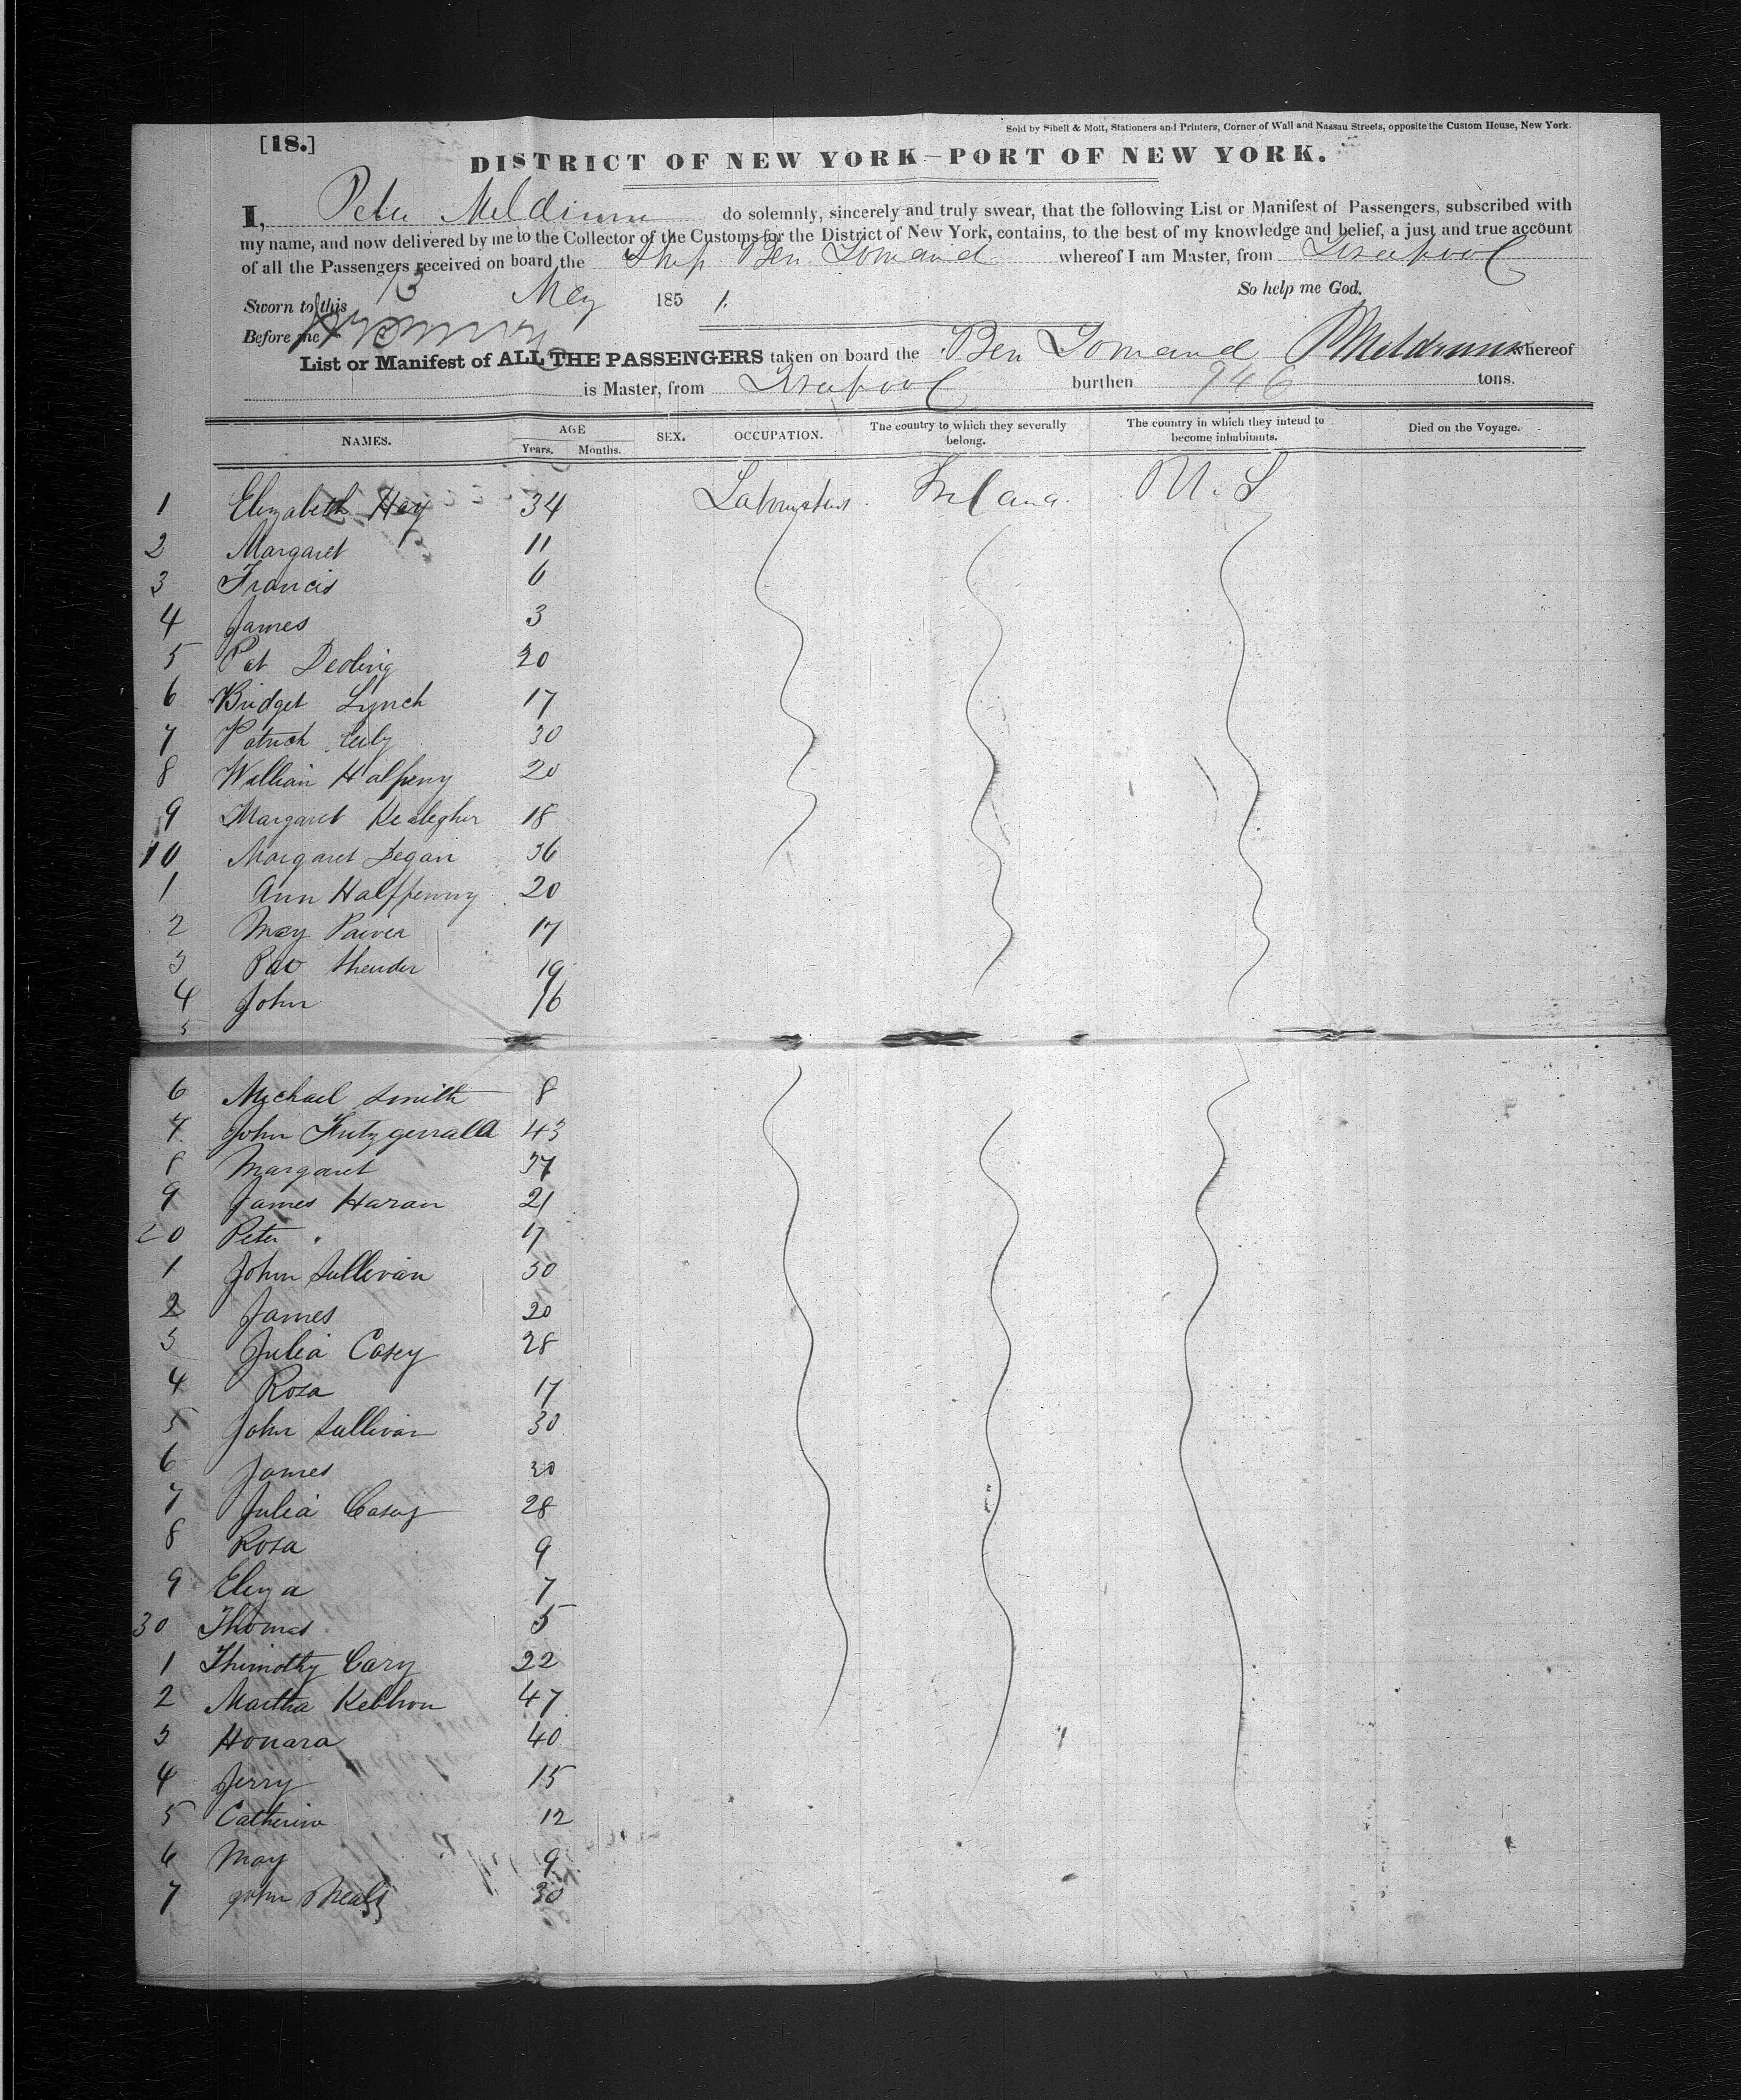 [18.]
Sold by Sibell & Mott, Stationers and Printers, Corner of Wall and Nassau Streets, opposite the Custom House, New York.
DISTRICT OF NEW YORK–PORT OF NEW YORK.
I, Peter Meldrum do solemnly, sincerely and truly swear, that the following List or Manifest of Passengers, subscribed with
my name, and now delivered by me to the Collector of the Customs for the District of New York, contains, to the best of my knowledge and belief, a just and true account
of all the Passengers received on board the Ship Ben Lomand whereof I am Master, from Liverpool
So help me God.
Sworn to this 13 May 1851.
Before me
List or Manifest of ALL THE PASSENGERS taken on board the Ben Lomand P Meldrum whereof
is Master, from Liverpool burthen 946 tons.
NAMES. AGE Years. Months. SEX. OCCUPATION. The country to which they severally belong. The country in which they intend to become inhabitants. Died on the Voyage.
1 Elizabeth Hay 34 U.S
2 Margaret 11
3 Francis 6
4 James 3
5 Pat 20
6 Bridget Lynch 17
7 Patrick 30
8 William Halfpeny 20
9 Margaret 18
10 Margaret Degan 36
1 Ann Halffpenny 20
2 May 17
3 Pat 19
4 John 16
5
6 Michael Smith 8
7 John Fitzgerrald 43
8 Margaret 37
9 James Haran 21
20 Peter " 17
1 John Sullivan 30
2 James 20
3 Julia Casey 28
4 Rosa 17
5 John Sullivan 30
6 James 20
7 Julia Casey 28
8 Rosa 9
9 Eliza 7
30 Thomas 5
1 Thimothy Cary 22
2 Martha 47
3 Honara 40
4 Jerry 15
5 Catherine 12
6 May 9
7 John 30